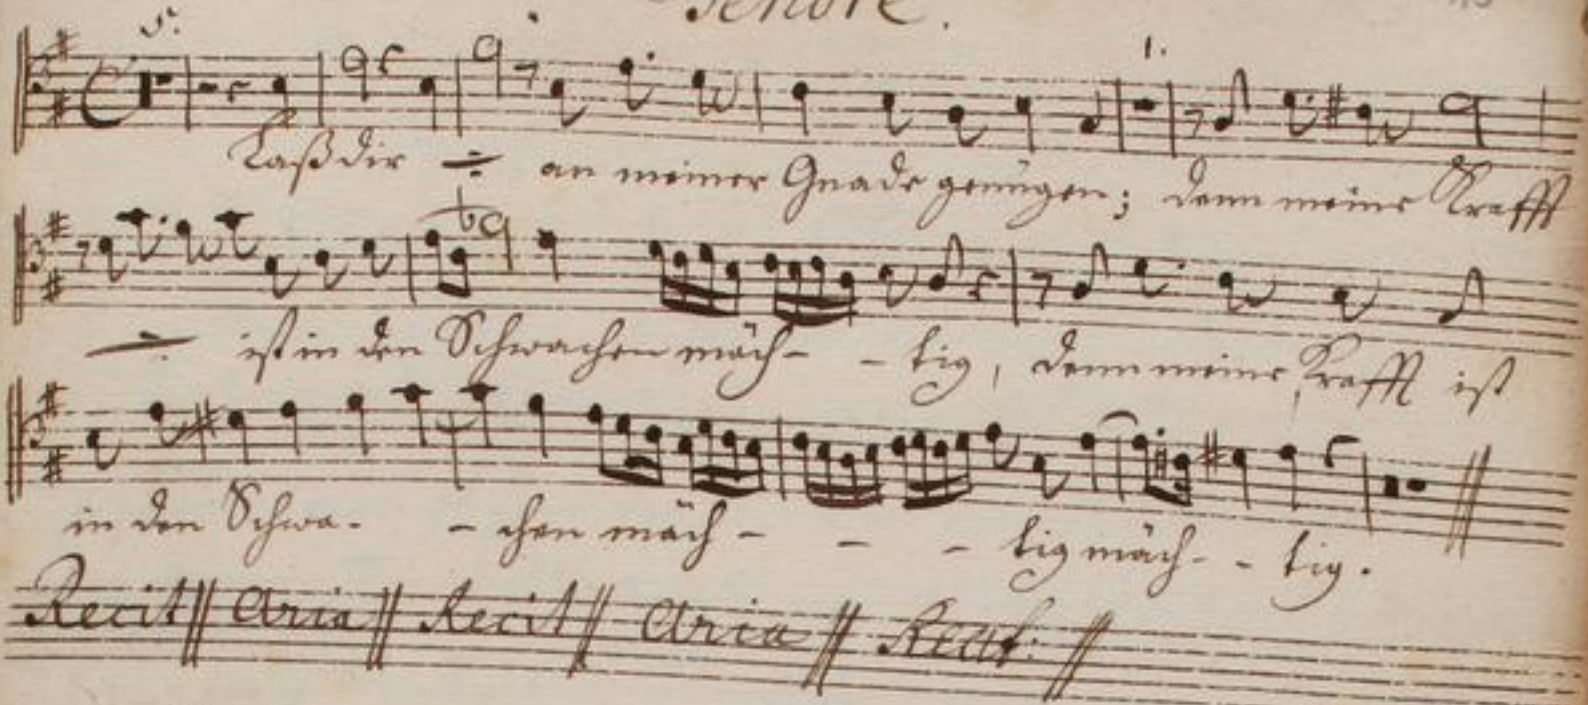 Tenore.
5. 1.
Laß dir ÷ an meiner Gnade genügen; denn meine Krafft
÷ ist in den Schwachen mäch- - tig, denn meine Krafft ist
in den Schwa- - chen mäch- - - tig mäch- - tig.
Recit || Aria || Recit || Aria || Recit: ||